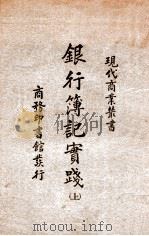 現代商業叢書
銀行簿記實踐(上)
商務印書館發行